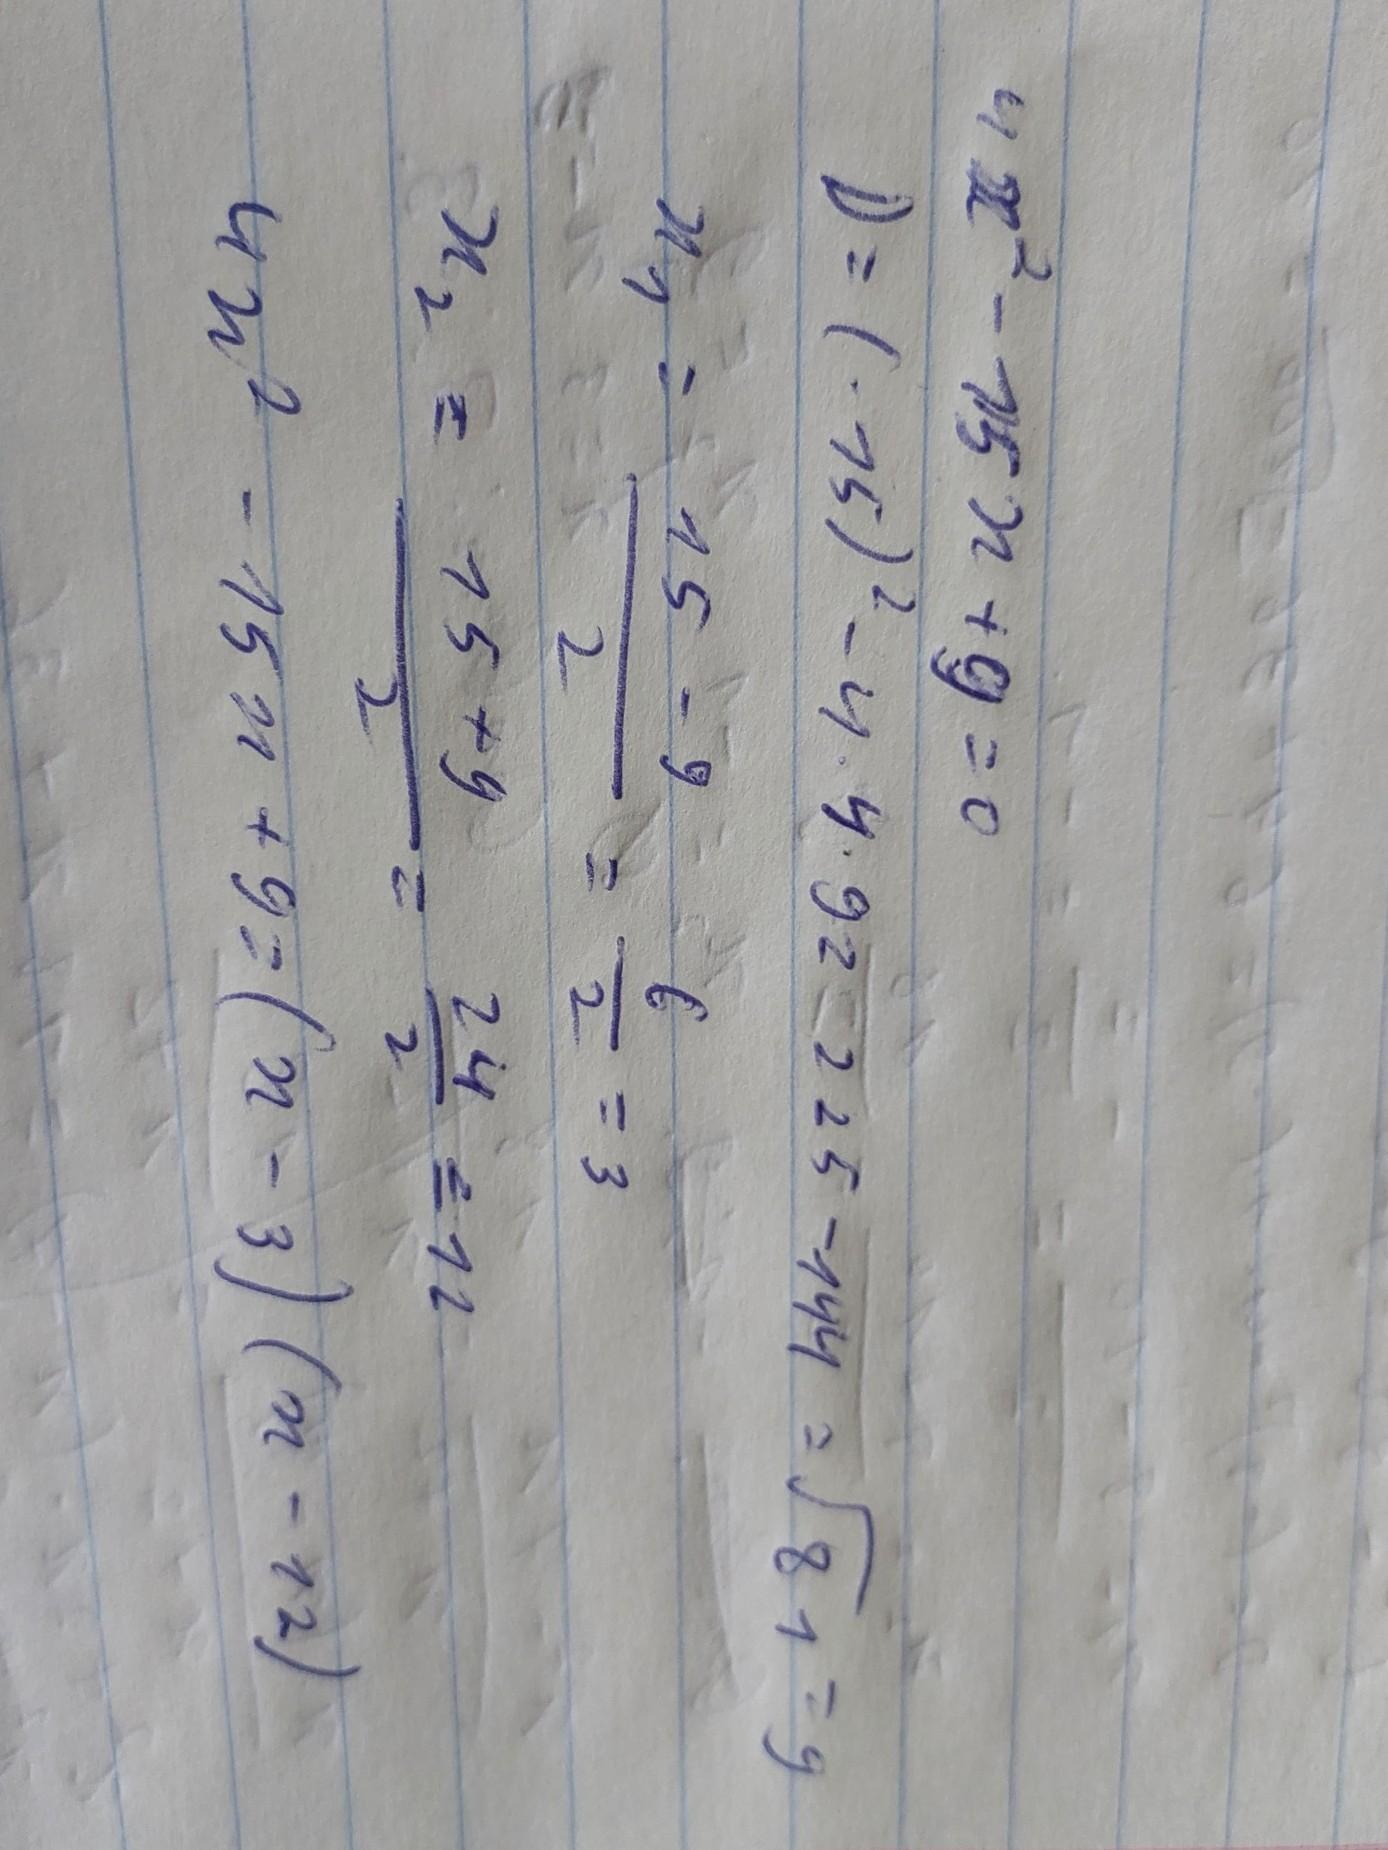 4x² - 15x + 9 = 0
D = (-15)² - 4·4·9 = 225 - 144 = √81 = 9
x₁ = (15 - 9)/2 = 6/2 = 3
x₂ = (15 + 9)/2 = 24/2 = 12
4x² - 15x + 9 = (x - 3)(x - 12)